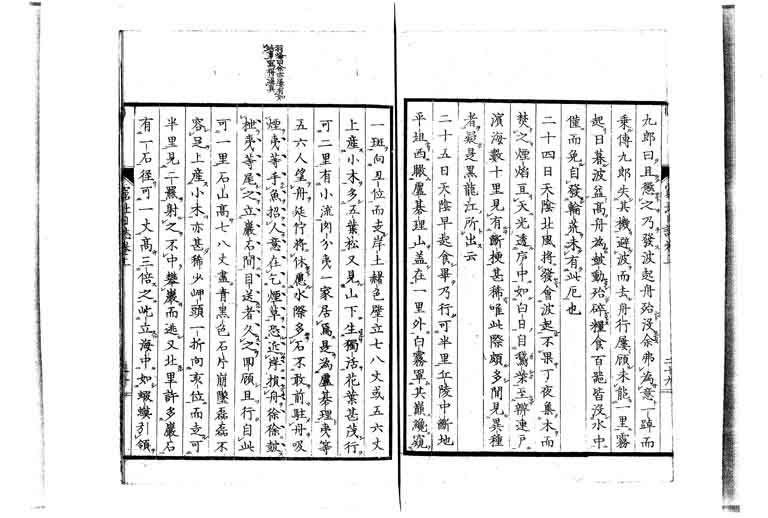 九郎曰且懲之乃發波起舟殆沒余弗為意一踔而
乘傳九郎失其機避波而去舟行屢顧未能一里霧
起日暮波益高舟為鼓動殆碎糧食百菢皆沒水中
僅而免自發輪菟未有此厄也
二十四日天陰北風將發會波起不果丁夜集木而
焚之煙焰亘天光透戶中如白日自鵞柴至辨連戶
濱海數十里見有斷梗甚稀唯此際頗多間見異種
者疑是黑龍江所出云
二十五日天陰早起食畢乃行可半里丘陵中斷地
平坦西瞰盧碁理山蓋在一里外白霧罩其巔纔窺
一斑向丑位而支岸土赭色壁立七八丈或五六丈
上産小木多五葉松又見山下生獨活花葉甚茂行
可二里有小流內分夷一家居焉是為盧碁理夷等
五六人望舟延佇將休應水際多石不敢前駐舟吸
煙夷等手魚招人意在乞煙草恐近岸損舟徐徐皷
枻夷等尾之立巖石間目送者久之即顧且行自此
可一里石山高七八丈盡青黑色石片崩墜磊磊不
容足上産小木亦甚稀少岬頭一折向亥位而支可
半里見二羆射之不中攀巖而逃又北里許多巖石
有一石徑可一丈高三倍之屹立海中如蝦蟆引領